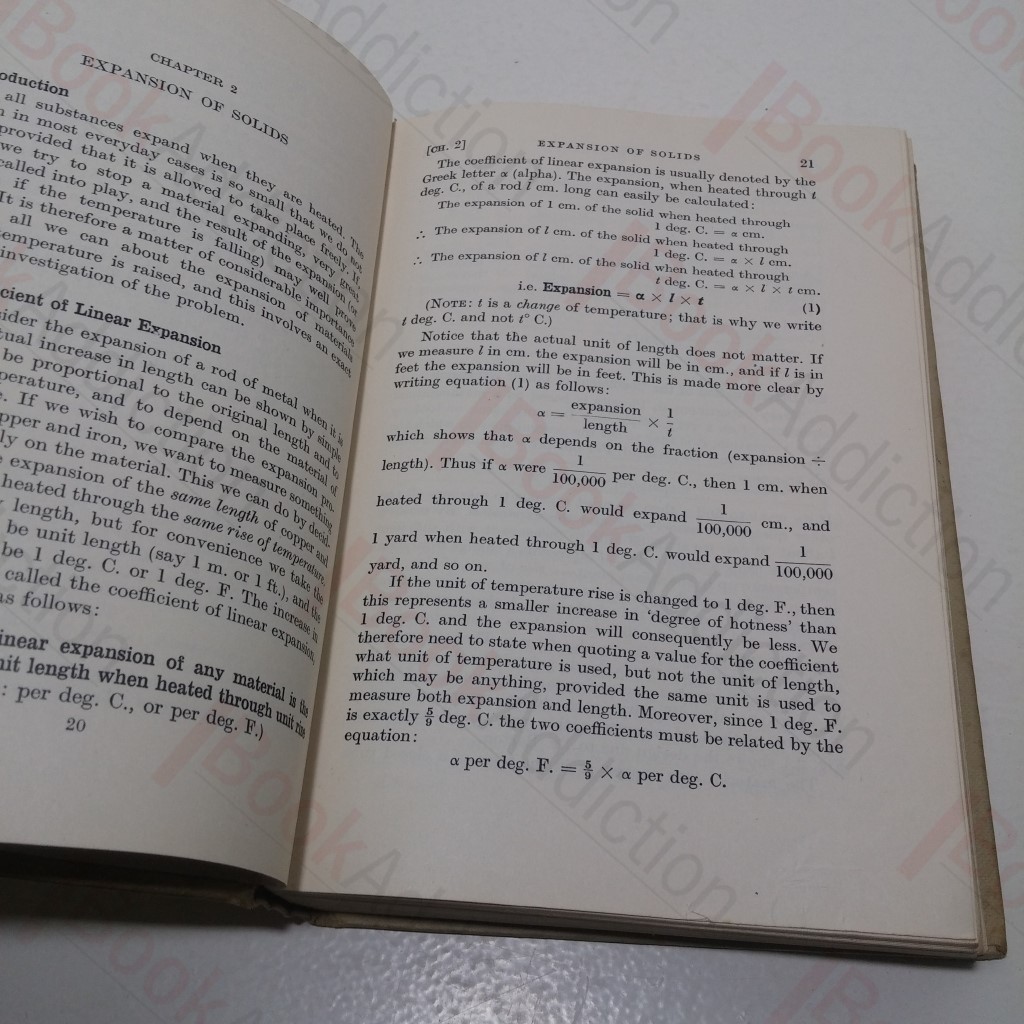 CHAPTER 2
EXPANSION OF SOLIDS
oduction
all substances expand when they are heated. The
in most everyday cases is so small that we do not
provided that it is allowed to take place freely. If
we try to stop a material expanding, very great
called into play, and the result of the expansion (or
if the temperature is falling) may well prove
It is therefore a matter of considerable importance
all we can about the expansion of materials
temperature is raised, and this involves an exact
investigation of the problem.
cient of Linear Expansion
sider the expansion of a rod of metal when it is
tual increase in length can be shown by simple
be proportional to the original length and to
perature, and to depend on the material of
e. If we wish to compare the expansion pro-
pper and iron, we want to measure something
ly on the material. This we can do by decid-
e expansion of the same length of copper and
heated through the same rise of temperature.
length, but for convenience we take the
be unit length (say 1 m. or 1 ft.), and the
be 1 deg. C. or 1 deg. F. The increase in
called the coefficient of linear expansion,
as follows:
inear expansion of any material is the
nit length when heated through unit rise
: per deg. C., or per deg. F.)
20
[CH. 2] EXPANSION OF SOLIDS 21
The coefficient of linear expansion is usually denoted by the
Greek letter α (alpha). The expansion, when heated through t
deg. C., of a rod l cm. long can easily be calculated:
The expansion of 1 cm. of the solid when heated through
1 deg. C. = α cm.
∴ The expansion of l cm. of the solid when heated through
1 deg. C. = α × l cm.
∴ The expansion of l cm. of the solid when heated through
t deg. C. = α × l × t cm.
i.e. Expansion = α × l × t (1)
(NOTE: t is a change of temperature; that is why we write
t deg. C. and not t° C.)
Notice that the actual unit of length does not matter. If
we measure l in cm. the expansion will be in cm., and if l is in
feet the expansion will be in feet. This is made more clear by
writing equation (1) as follows:
α = expansion/length × 1/t
which shows that α depends on the fraction (expansion ÷
length). Thus if α were 1/100,000 per deg. C., then 1 cm. when
heated through 1 deg. C. would expand 1/100,000 cm., and
1 yard when heated through 1 deg. C. would expand 1/100,000
yard, and so on.
If the unit of temperature rise is changed to 1 deg. F., then
this represents a smaller increase in 'degree of hotness' than
1 deg. C. and the expansion will consequently be less. We
therefore need to state when quoting a value for the coefficient
what unit of temperature is used, but not the unit of length,
which may be anything, provided the same unit is used to
measure both expansion and length. Moreover, since 1 deg. F.
is exactly 5/9 deg. C. the two coefficients must be related by the
equation:
α per deg. F. = 5/9 × α per deg. C.